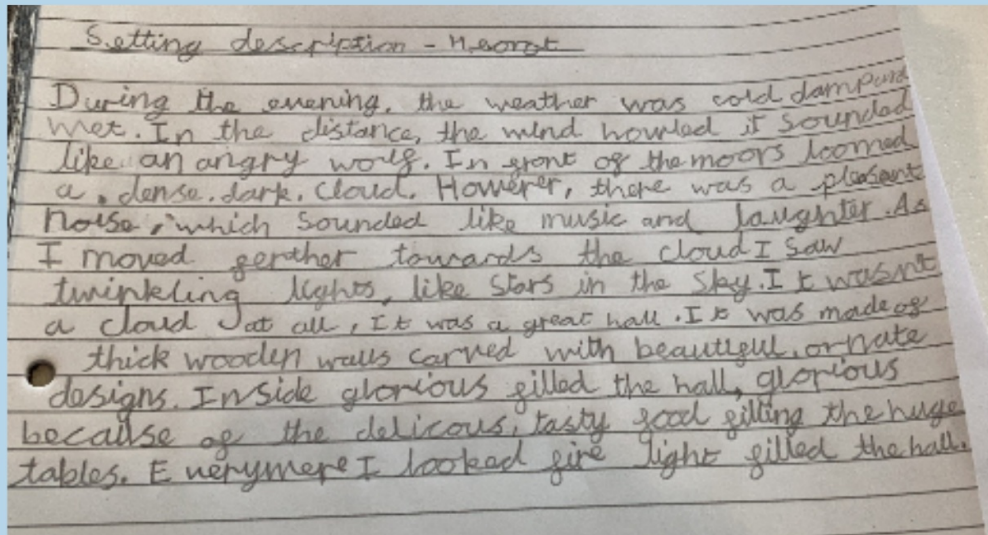 Setting description - Heorot
During the evening, the weather was cold damp and
wet. In the distance, the wind howled it sounded
like an angry wolf. In front of the moors loomed
a, dense, dark, cloud. However, there was a pleasant
noise, which sounded like music and laughter. As
I moved ferther towards the cloud I saw
twinkling lights, like stars in the sky. It wasn't
a cloud at all, It was a great hall. It was made of
thick wooden walls carved with beautiful, ornate
designs. Inside glorious filled the hall, glorious
because of the delicous, tasty food filling the huge
tables. Everywere I looked fire light filled the hall.